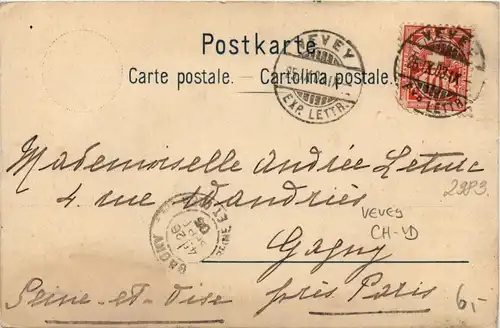 Postkarte.
Carte postale. — Cartolina postale.
VEVEY
EXP. LETTR.
VEVEY
EXP. LETTR.
Mademoiselle Andrée Leture
4. rue
2983.
VEVEY
CH-VD
GAGNY
SEINE ET OISE
Gagny
Seine-et-Oise près Paris
6,-